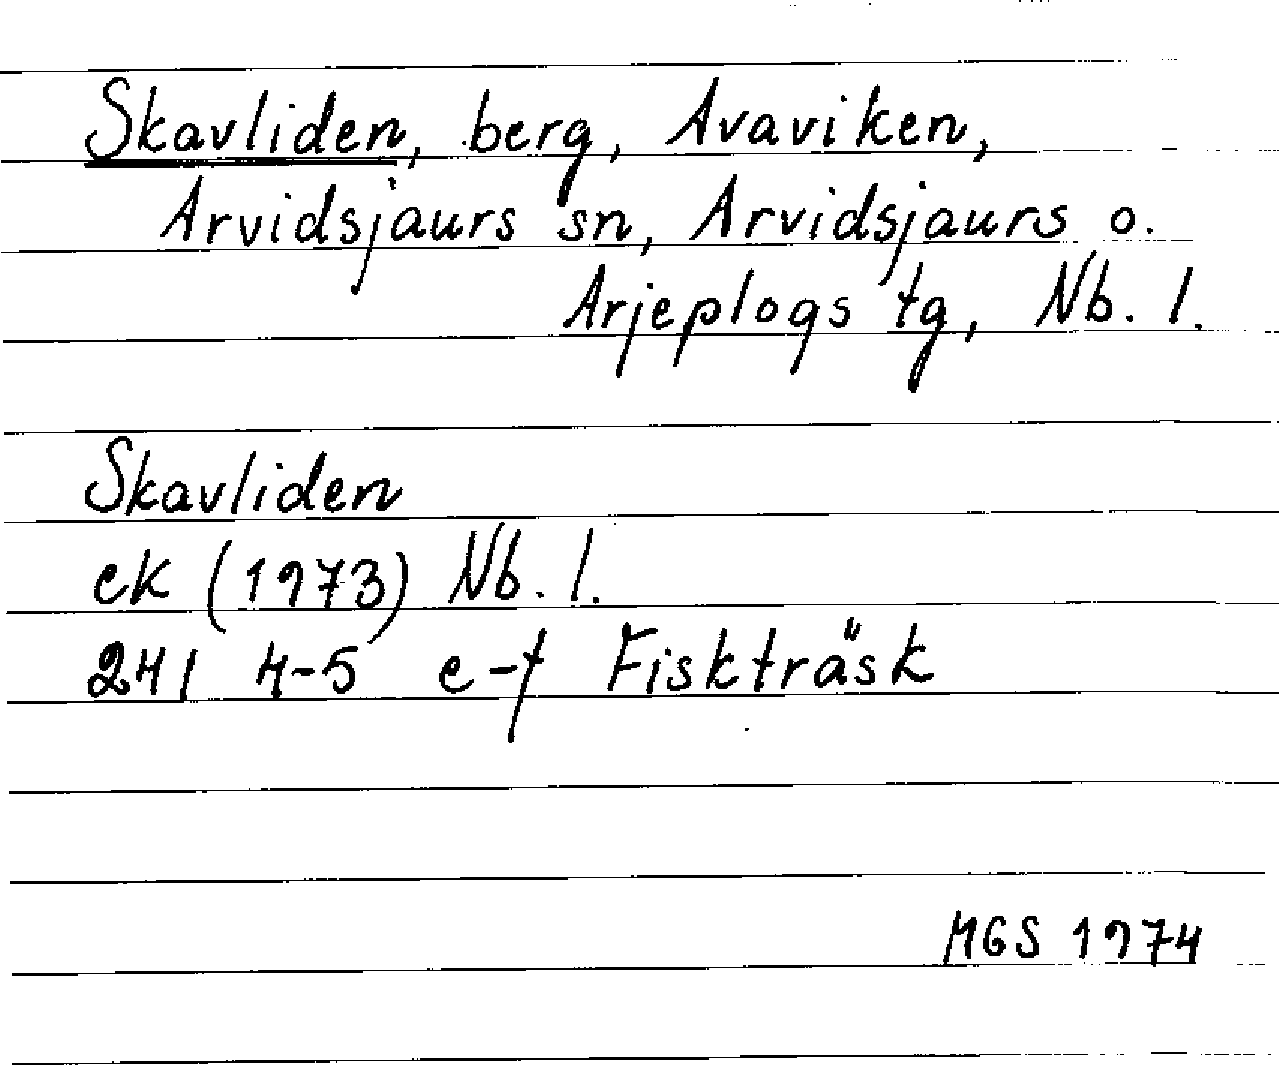 Skavliden, berg, Avaviken,
Arvidsjaurs sn, Arvidsjaurs o.
Arjeplogs tg, Nb. l.
Skavliden
ek (1973) Nb. l.
24I 4-5 e-f Fiskträsk
MGS 1974